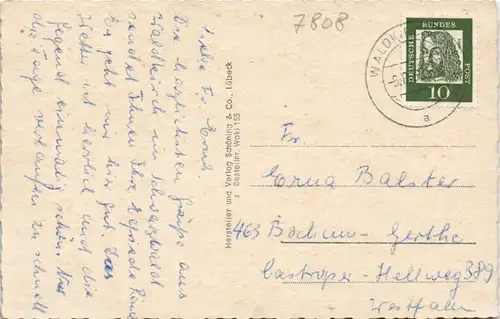 Liebe Fr. Erna!
Die herzlichsten Grüße aus
Waldkirch im Schwarzwald
sendet Ihnen Ihre
Es geht mir hier gut. Das
Wetter ist herrlich und die
Gegend einmalig schön. Nur
die Tage verlaufen zu schnell
Hersteller und Verlag Schöning & Co., Lübeck
z Bestellnr. Waki 155
7808
WALDK
a
DEUTSCHE
BUNDES
POST
10
Fr.
Erna Balster
463 Bochum-Gerthe
Castroper-Hellweg 389
Westfalen